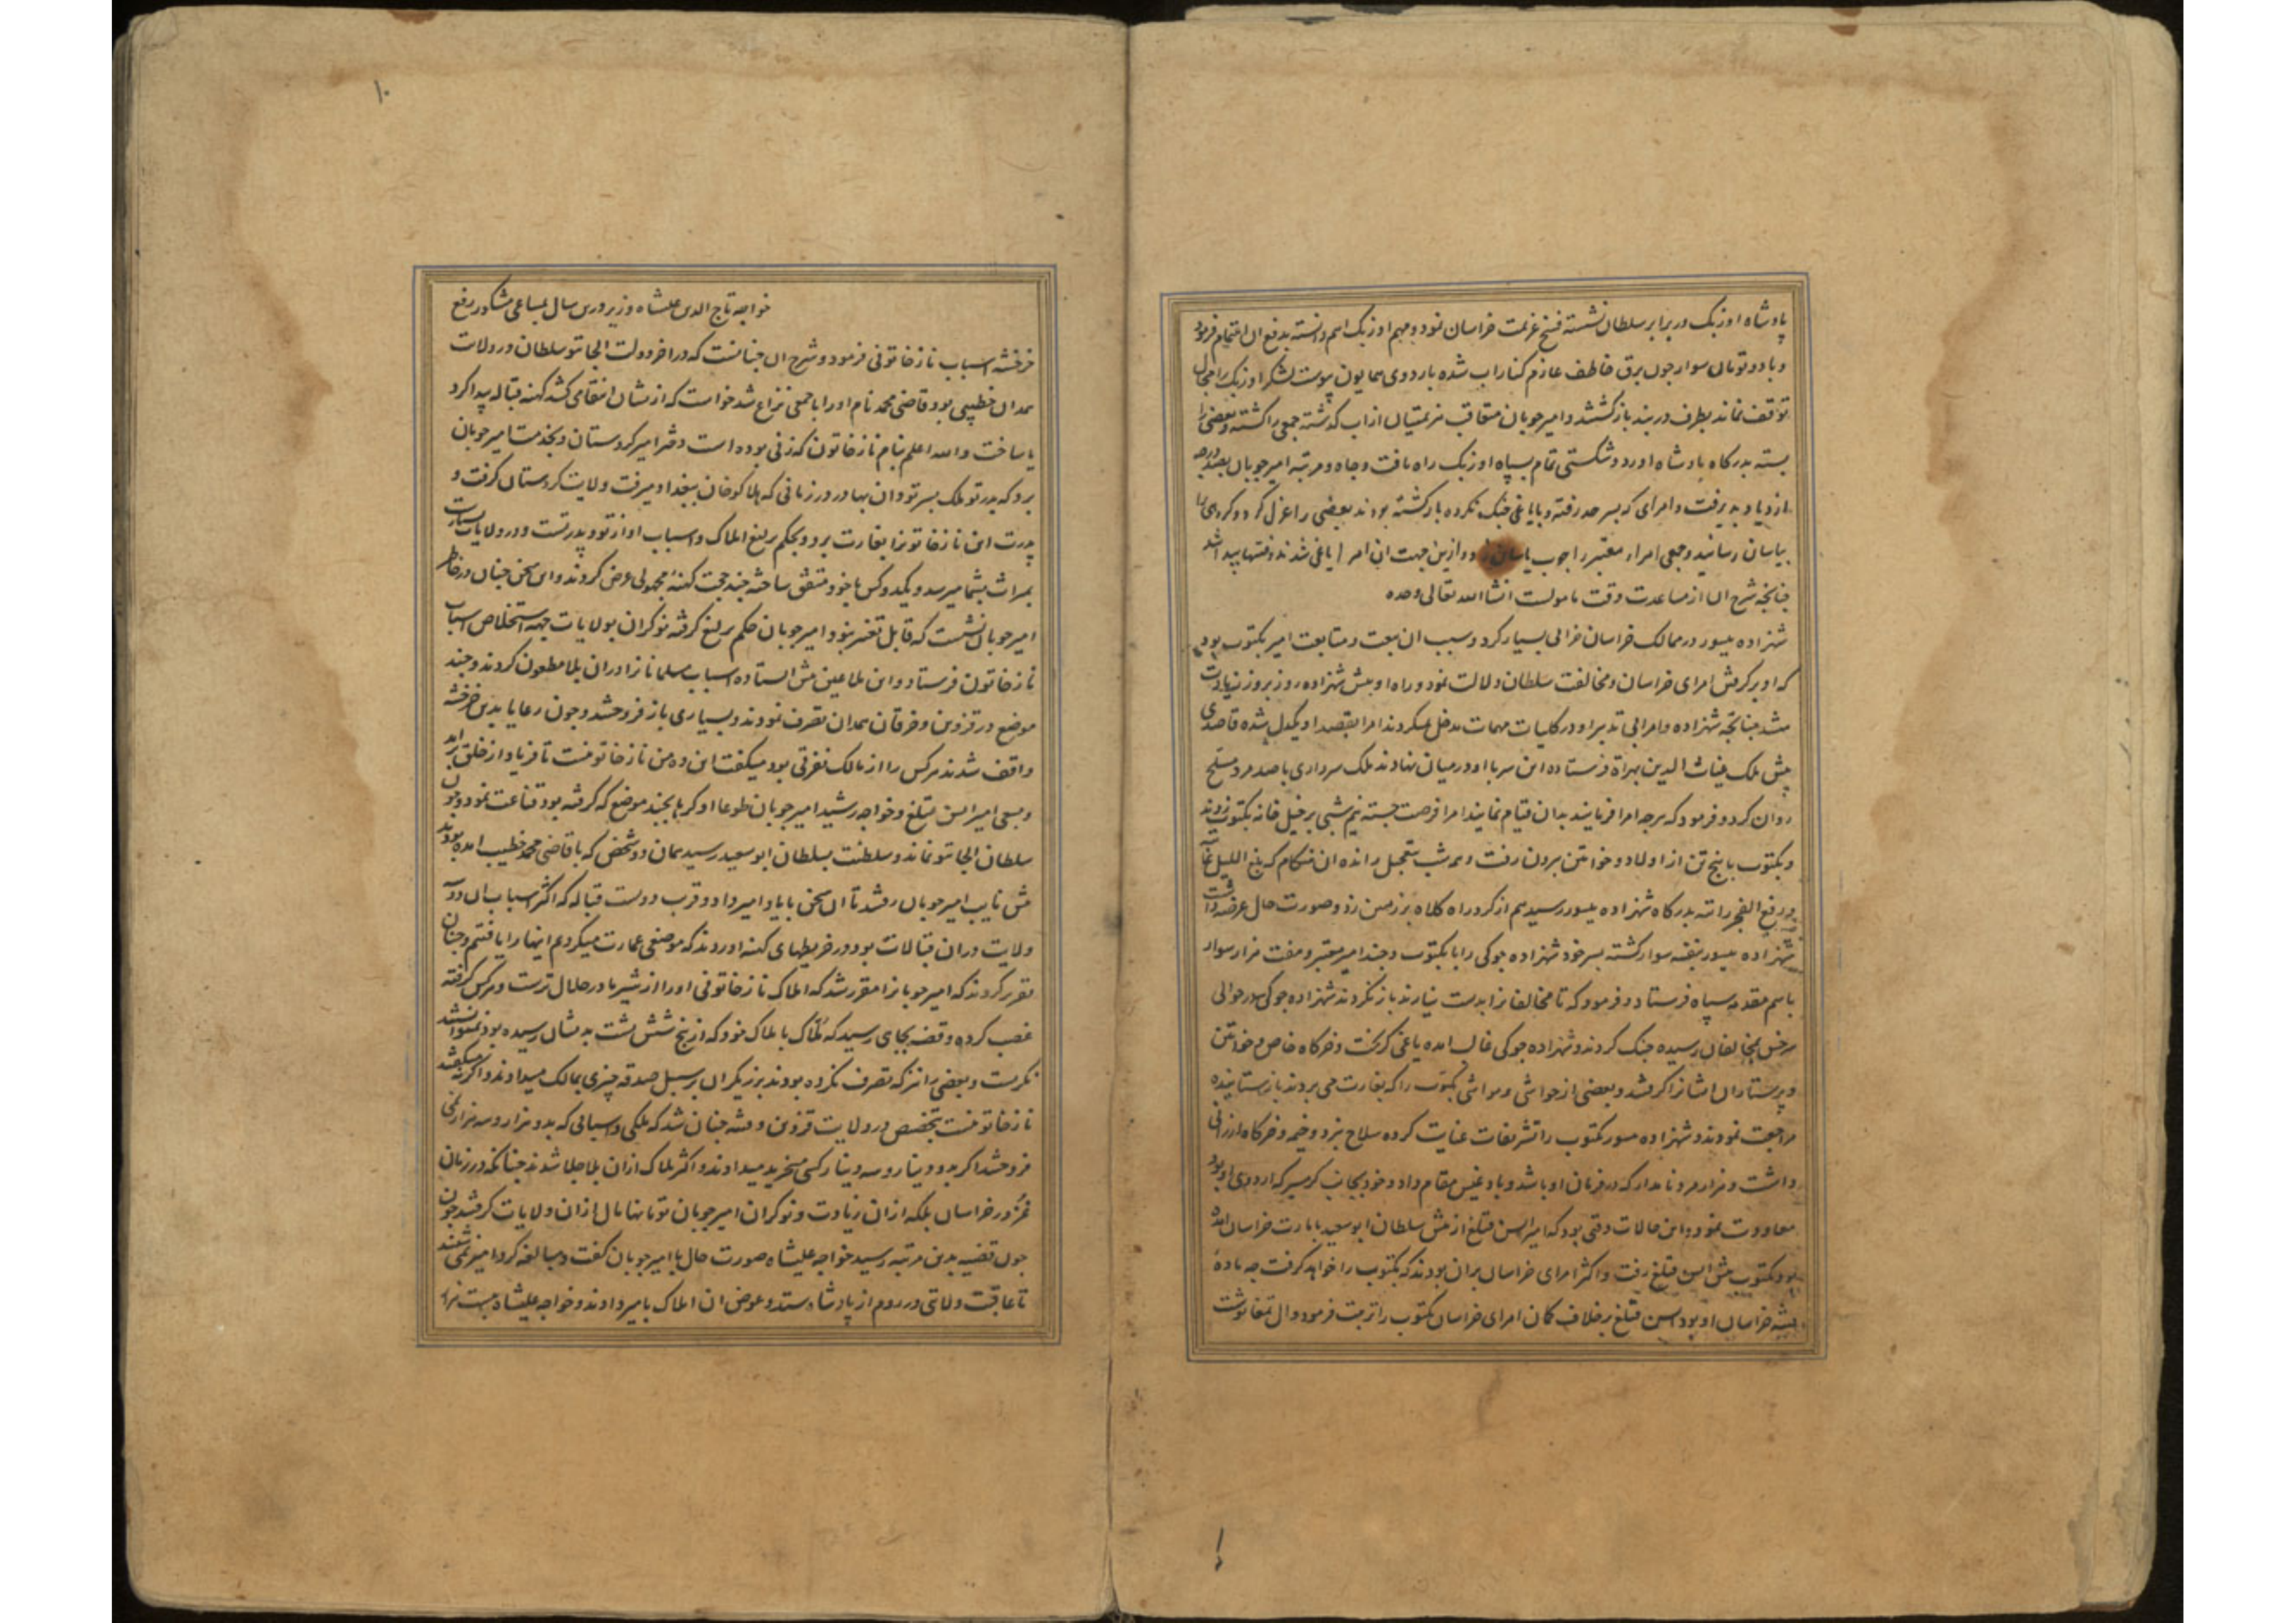 پادشاه اوزبک در برابر سلطان نشسته فسخ عزیمت خراسان نمود و مهم اوزبک اهم دانسته بدفع ان اهتمام فرمود
و با دو تومان سوار چون برق خاطف عازم کنار اب شده باردوی همایون پیوست لشکر اوزبک را مجال
توقف نماند بطرف دربند بازگشتند و امیر جوبان متعاقب منهزمان از اب گذشته جمعی را کشته و بعضی را
بسته بدرگاه پادشاه اورد و شکستی تمام بسپاه اوزبک راه یافت و جاه و مرتبه امیر جوبان بصد درجه
ازدیاد پذیرفت و امرای که بسرحد رفته و با یاغی جنک نکرده بازگشته بودند بعضی را عزل کرد و گروهی را
بیاسان رسانید و جمعی امراء معتبر را جوب یاساق زد و ازین جهت ان امرا یاغی شدند و فتنها پیدا شد
جنانچه شرح ان از مساعدت وقت مامولست انشا الله تعالی وحده
شهزاده یسور در ممالک خراسان خرابی بسیار کرد و سبب ان بیعت و متابعت امیر بکتوب بود
که او بر گرفتن امرای خراسان و مخالفت سلطان دلالت نمود و راه او پیش شهزاده روز بروز زیادت
میشد جنانچه شهزاده و امرا بی تدبیر او در کلیات مهمات مدخل نمیکردند امرا بقصد او یکدل شده قاصدی
پیش ملک غیاث الدین بهراة فرستاده این سر با او در میان نهادند ملک سرداری با صد مرد مسلح
روان کرد و فرمود که هرجه امرا فرمایند بدان قیام نمایند امرا فرصت جسته نیم شبی بر خیل خانه بکتوب زدند
و بکتوب با پنج تن از اولاد و خواتین بیرون رفت و همه شب بتعجیل رانده ان هنکام که بلغ اللیل غایته
و رفع الفجر رایته بدرگاه شهزاده یسور رسید هم از گرد راه کلاه بر زمین زد و صورت حال عرضه داشت
شهزاده یسور بنفسه سوار گشته پسر خود شهزاده جوکی را با بکتوب و جند امیر معتبر و هفت هزار سوار
باسم مقدمه سپاه فرستاد و فرمود که تا مخالفانرا بدست نیارند باز نگردند شهزاده جوکی در حوالی
سرخس بمخالفان رسیده جنک کردند و شهزاده جوکی غالب امده یاغی گریخت و خرگاه خاص و خواتین
و پرستاران ایشانرا گرفتند و بعضی از حواشی و مواشی بکتوب را که بغارت می بردند بازستانیده
مراجعت نمودند و شهزاده یسور بکتوب را تشریفات عنایت کرده سلاح نبرد و خیمه و خرگاه ارزانی
داشت و هزار مرد نامدار که در فرمان او باشد و بادغیس مقام داد و خود بجانب گرمسیر که اردوی او بود
معاودت نمود و این حالات وقتی بود که امیر ایسن قتلغ از پیش سلطان ابو سعید بامارت خراسان امده
بود بکتوب پیش ایسن قتلغ رفت و اکثر امرای خراسان بران بودند که بکتوب را خواهد گرفت جه ماده
فتنه خراسان او بود ایسن قتلغ برخلاف گمان امرای خراسان بکتوب را تربیت فرمود و ال تمغا نوشت
۱۰
خواجه تاج الدین علیشاه وزیر درین سال بمساعی مشکور رفع
خرخشه اسباب نازخاتونی فرمود و شرح ان جنانست که در اخر دولت الجایتو سلطان در ولایت
همدان خطیبی بود قاضی محمد نام او را با جمعی نزاع شد خواست که ازیشان انتقامی کشد کهنه قباله پیدا کرد
یا ساخت والله اعلم بنام نازخاتون که زنی بوده است دختر امیر کردستان و بخدمت امیر جوبان
برد که پدر تو ملک بسر تودان بهادر در زمانی که هلاکو خان ببغداد میرفت ولایت کردستان گرفت و
پدرت این نازخاتونرا بغارت برد و بحکم یرلیغ املاک و اسباب او از تو و پدر تست و در ولایات بسیارست
بمیراث بشما میرسد و یکدو کس با خود متفق ساخته جند حجت کهنه مجهولی عرض کردند و این سخن جنان در خاطر
امیر جوبان نشست که قابل تغییر نبود و امیر جوبان حکم یرلیغ گرفته نوکران بولایات جهة استخلاص اسباب
نازخاتون فرستاد و این ملاعین پیش ایستاده اسباب مسلمانانرا دران بلا مطعون کردند و جند
موضع در قزوین و خرقان همدان تصرف نمودند و بسیاری باز فروختند و جون رعایا بدین خرخشه
واقف شدند هرکس را از مالک نفرتی بود میگفت این ده من نازخاتونیست تا فریاد از خلق براید
و بسعی امیر ایسن قتلغ و خواجه رشید امیر جوبان طوعا او کرها بجند موضع که گرفته بود قناعت نمود و جون
سلطان الجایتو نماند و سلطنت بسلطان ابو سعید رسید همان دو شخص که با قاضی محمد خطیب امده بودند
پیش نایب امیر جوبان رفتند تا ان سخن بایاد امیر داد و قرب دویست قباله که اکثر اسباب ان دو سه
ولایت دران قبالات بود در خریطهای کهنه اوردند که موضعی عمارت میکردیم اینها را یافتیم و جنان
تقریر کردند که امیر جوبانرا مقرر شد که املاک نازخاتونی او را از شیر مادر حلال ترست و هرکس گرفته
غصب کرده و قضیه بجای رسید که ملاک با ملاک خود که از پنج شش پشت بدیشان رسیده بود نمیتوانستند
نگریست و بعضی را نیز که تصرف نکرده بودند برزیگران بر سبیل صدقه چیزی بمالک میدادند و اگر نه میگفتند
نازخاتونیست بتخصیص در ولایت قزوین و فتنه جنان شد که ملکی و اسبابی که بدو هزار و سه هزار نمی
فروختند اگر بدو دینار و سه دینار کسی میخرید میدادند و اکثر ملاک ازان بلا جلا شدند جنانکه در زمان
غز در خراسان بلکه ازان زیادت و نوکران امیر جوبان تومانها مال ازان ولایات گرفتند جون
جون قضیه بدین مرتبه رسید خواجه علیشاه صورت حال با امیر جوبان گفت و مبالغه کرد امیر نمی شنید
تا عاقبت ولایتی در روم از پادشاه ستد و عوض ان املاک بامیر دادند و خواجه علیشاه بیست هزار